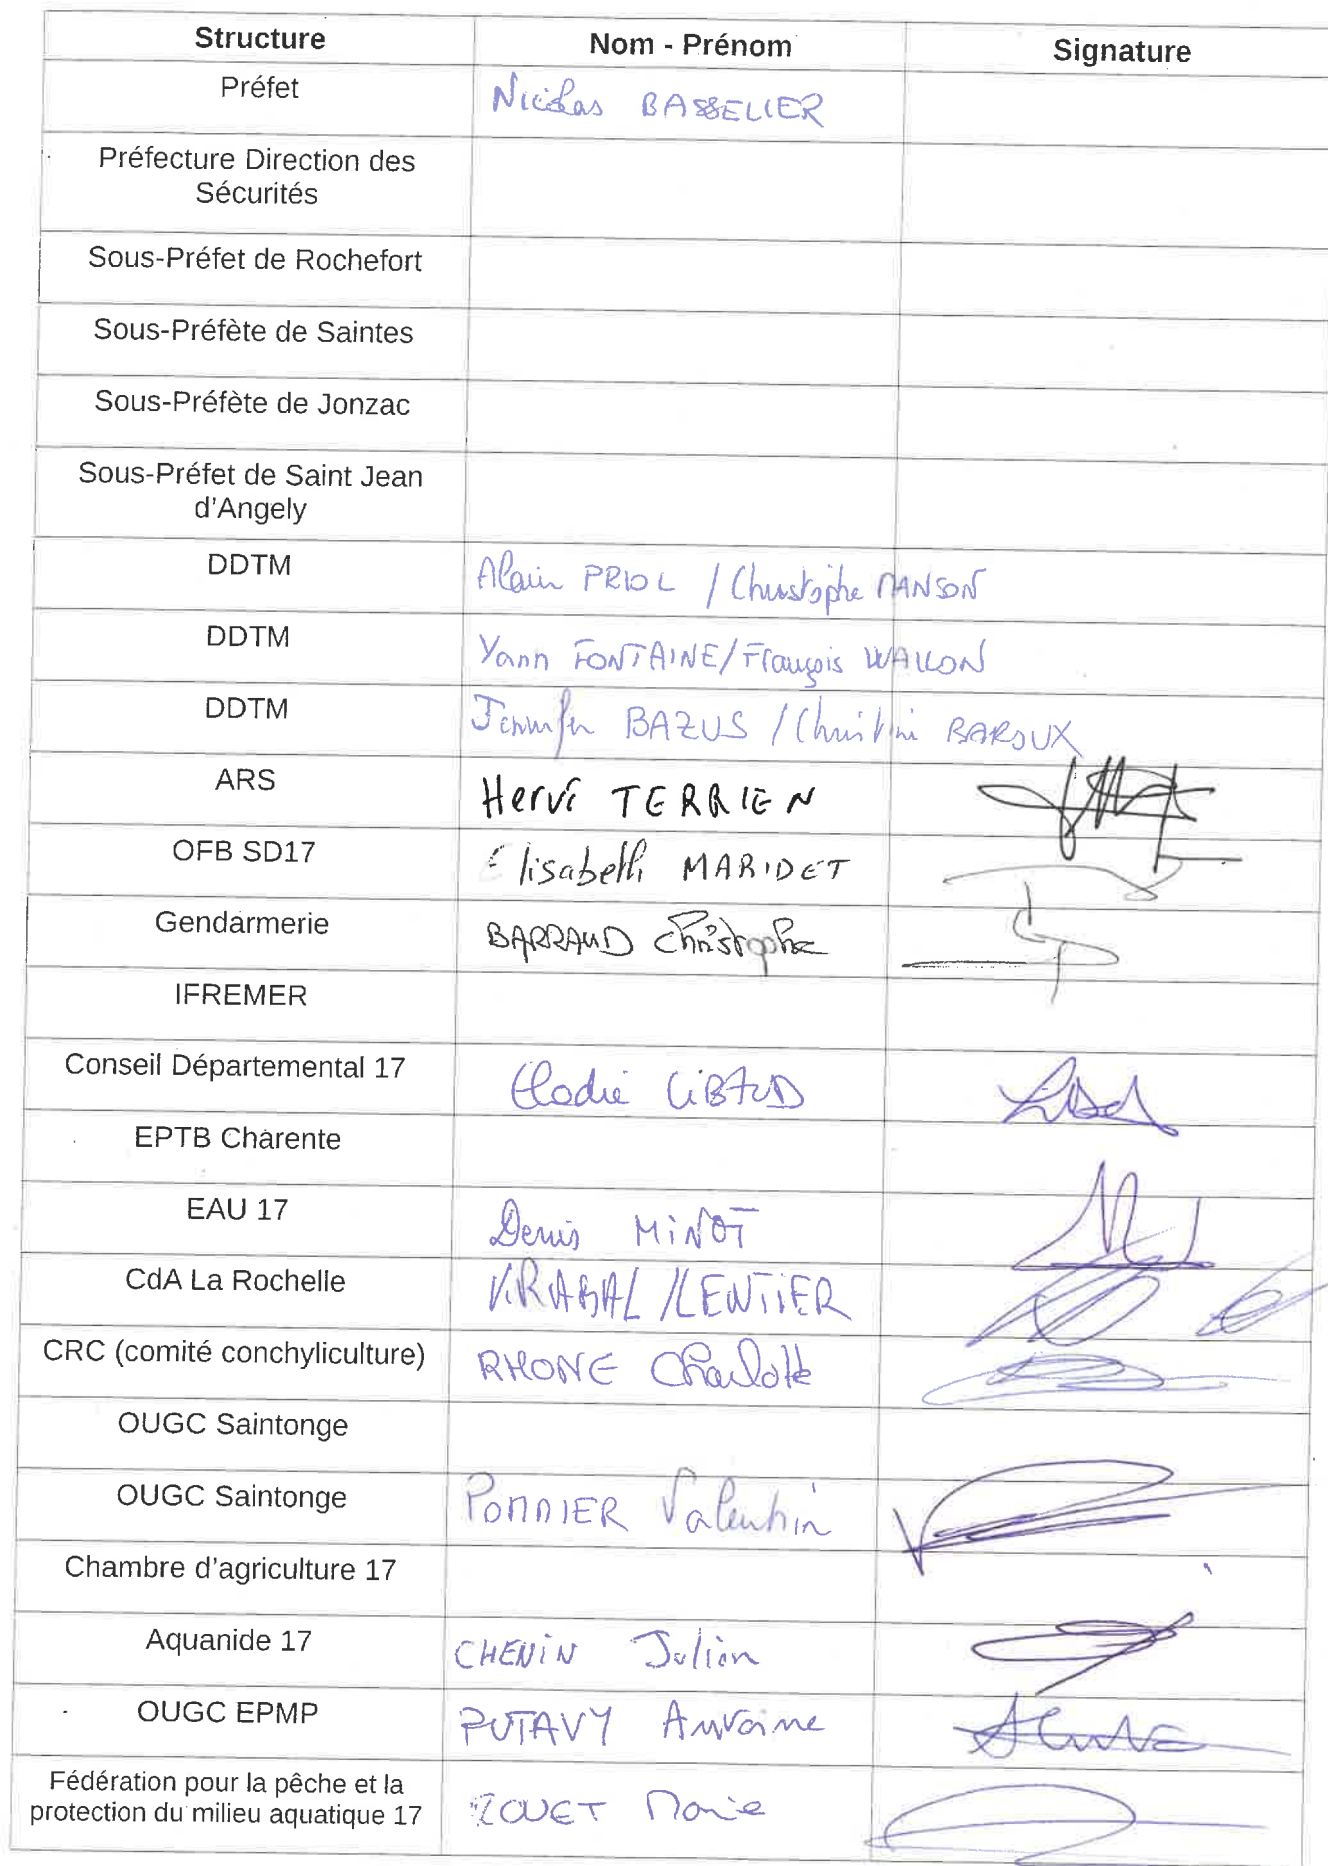 Structure Nom - Prénom Signature
Préfet Nicolas BASSELIER
Préfecture Direction des
Sécurités
Sous-Préfet de Rochefort
Sous-Préfète de Saintes
Sous-Préfète de Jonzac
Sous-Préfet de Saint Jean
d'Angely
DDTM Alain PRIOL / Christophe MANSON
DDTM Yann FONTAINE/François WALLON
DDTM Jennifer BAZUS / Christine BAROUX
ARS Hervé TERRIEN
OFB SD17 Elisabeth MARIDET
Gendarmerie BARRAUD Christophe
IFREMER
Conseil Départemental 17 Elodie LIBAUD
EPTB Charente
EAU 17 Denis MINOT
CdA La Rochelle /LENTIER
CRC (comité conchyliculture) RHONE Charlotte
OUGC Saintonge
OUGC Saintonge POMMIER Valentin
Chambre d'agriculture 17
Aquanide 17 CHENIN Julien
OUGC EPMP PUTAVY Antoine
Fédération pour la pêche et la
protection du milieu aquatique 17 ROUET Marie